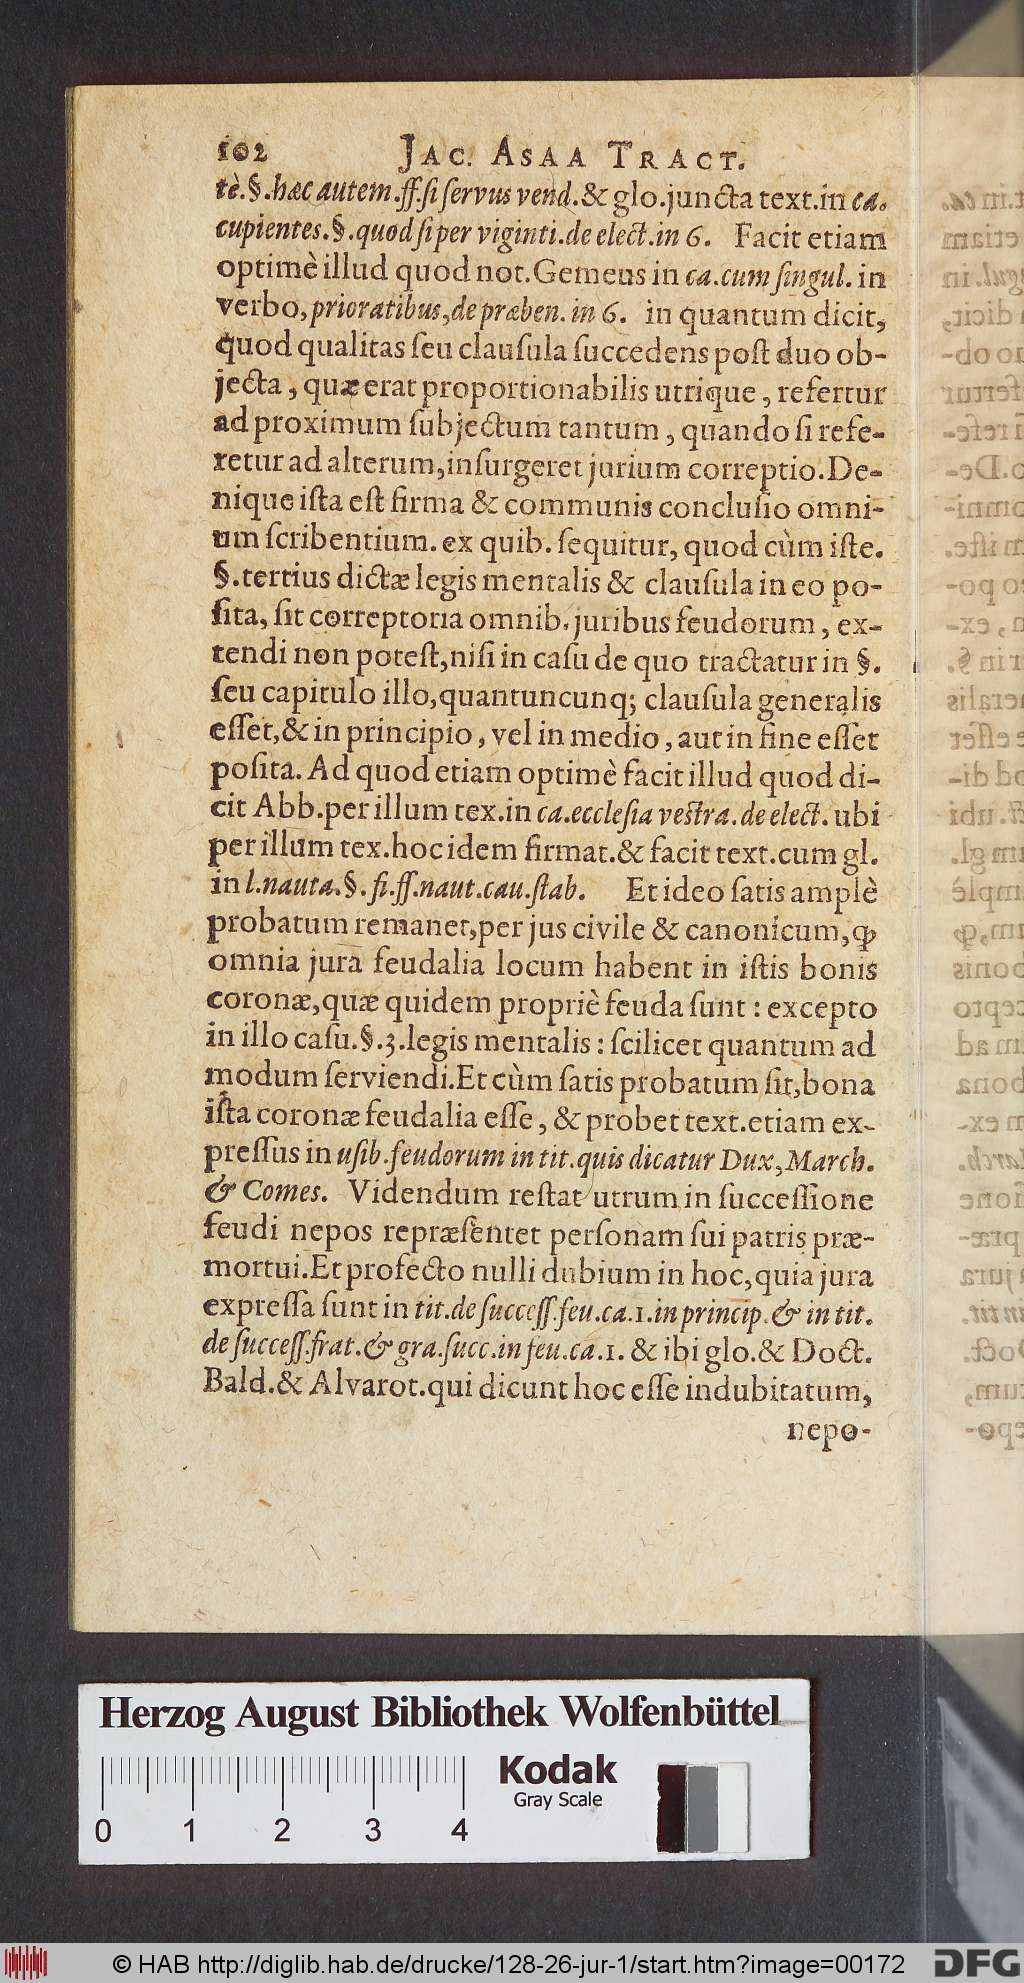 102 JAC. ASAA TRACT.
tè.§.hæc autem.ff.si servus vend.& glo.juncta text.in ca.
cupientes.§.quod si per viginti.de elect.in 6. Facit etiam
optimè illud quod not.Gemeus in ca.cum singul. in
verbo,prioratibus,de præben. in 6. in quantum dicit,
quod qualitas seu clausula succedens post duo ob-
jecta, quæ erat proportionabilis utrique, refertur
ad proximum subjectum tantum, quando si refe-
retur ad alterum,insurgeret jurium correptio.De-
nique ista est firma & communis conclusio omni-
um scribentium. ex quib. sequitur, quod cùm iste.
§.tertius dictæ legis mentalis & clausula in eo po-
sita, sit correptoria omnib. juribus feudorum, ex-
tendi non potest,nisi in casu de quo tractatur in §.
seu capitulo illo,quantuncunq; clausula generalis
esset,& in principio, vel in medio, aut in fine esset
posita. Ad quod etiam optimè facit illud quod di-
cit Abb.per illum tex.in ca.ecclesia vestra.de elect. ubi
per illum tex.hoc idem firmat.& facit text.cum gl.
in l.nauta.§.fi.ff.naut.cau.stab. Et ideo satis amplè
probatum remanet,per jus civile & canonicum,ꝙ
omnia jura feudalia locum habent in istis bonis
coronæ,quæ quidem propriè feuda sunt: excepto
in illo casu.§.3.legis mentalis: scilicet quantum ad
modum serviendi.Et cùm satis probatum sit,bona
ista coronæ feudalia esse, & probet text.etiam ex-
pressus in usib.feudorum in tit.quis dicatur Dux,March.
& Comes. Videndum restat utrum in successione
feudi nepos repræsentet personam sui patris præ-
mortui.Et profecto nulli dubium in hoc,quia jura
expressa sunt in tit.de success.feu.ca.1.in princip.& in tit.
de success.frat.& gra.succ.in feu.ca.1. & ibi glo.& Doct.
Bald.& Alvarot.qui dicunt hoc esse indubitatum,
nepo-
Herzog August Bibliothek Wolfenbüttel
Kodak
Gray Scale
0 1 2 3 4
© HAB http://diglib.hab.de/drucke/128-26-jur-1/start.htm?image=00172
DFG